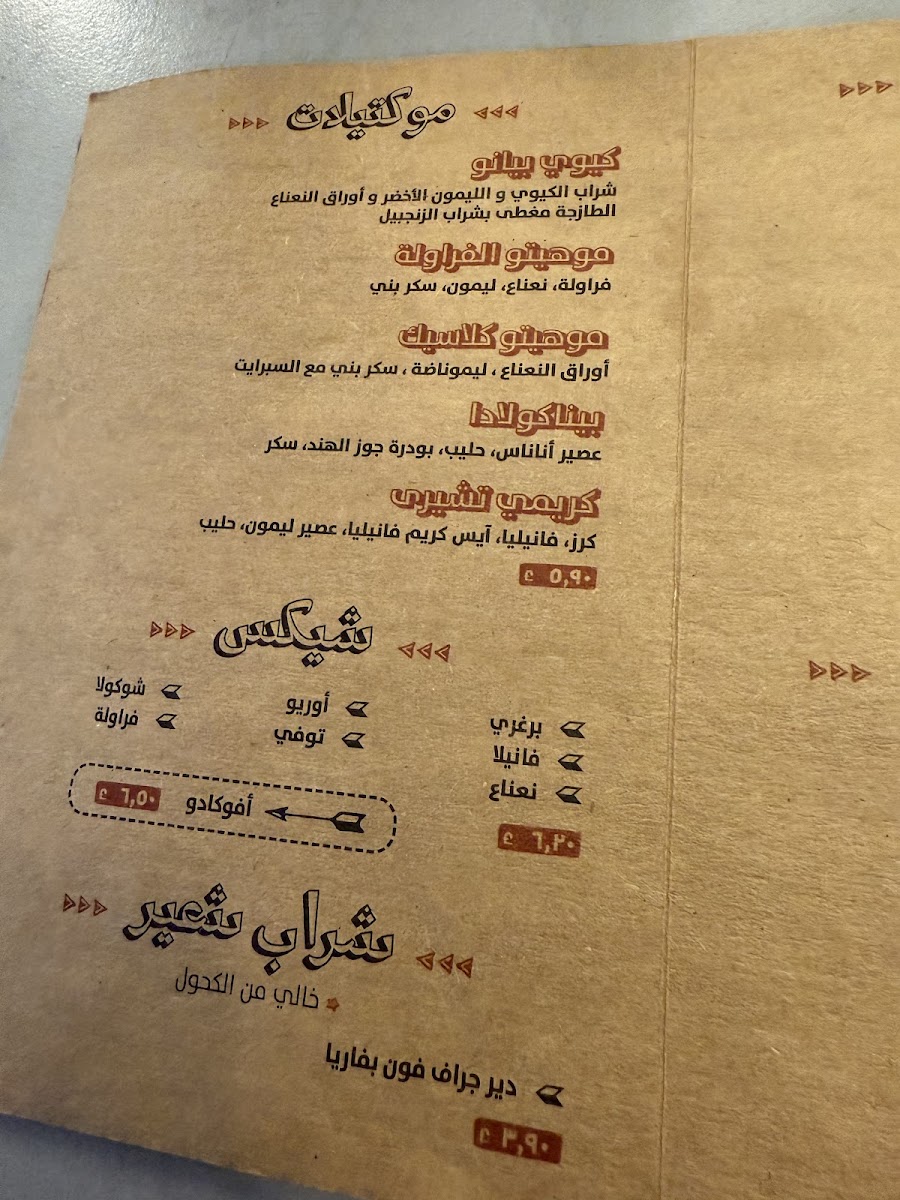 موكتيلات
كيوي بيانو
شراب الكيوي و الليمون الأخضر و أوراق النعناع
الطازجة مغطى بشراب الزنجبيل
موهيتو الفراولة
فراولة، نعناع، ليمون، سكر بني
موهيتو كلاسيك
أوراق النعناع ، ليموناضة ، سكر بني مع السبرايت
بيناكولادا
عصير أناناس، حليب، بودرة جوز الهند، سكر
كريمي تشيري
كرز، فانيليا، آيس كريم فانيليا، عصير ليمون، حليب
٥,٩٠ £
شيكس
برغري
فانيلا
نعناع
أوريو
توفي
شوكولا
فراولة
٦,٢٠ £
أفوكادو ٦,٥٠ £
شراب شعير
خالي من الكحول
دير جراف فون بفاريا
٣,٩٠ £